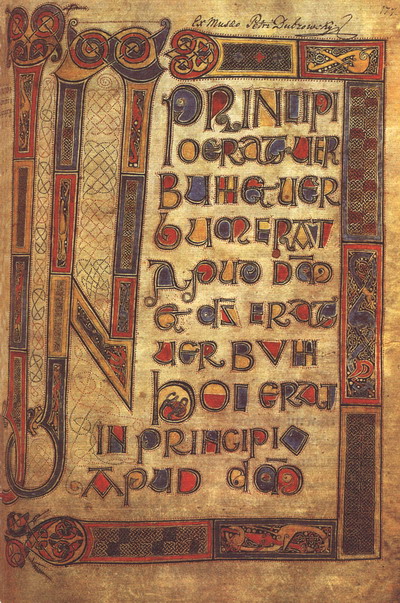 Ex Musæo Petri Dubrowsky
IN PRINCIPI
IO ERAT UER
BUM ET UER
BUM ERAT
APUD DM̄
ET DS̄ ERAT
UERBUM
HOC ERAT
IN PRINCIPIO
APUD DM̄